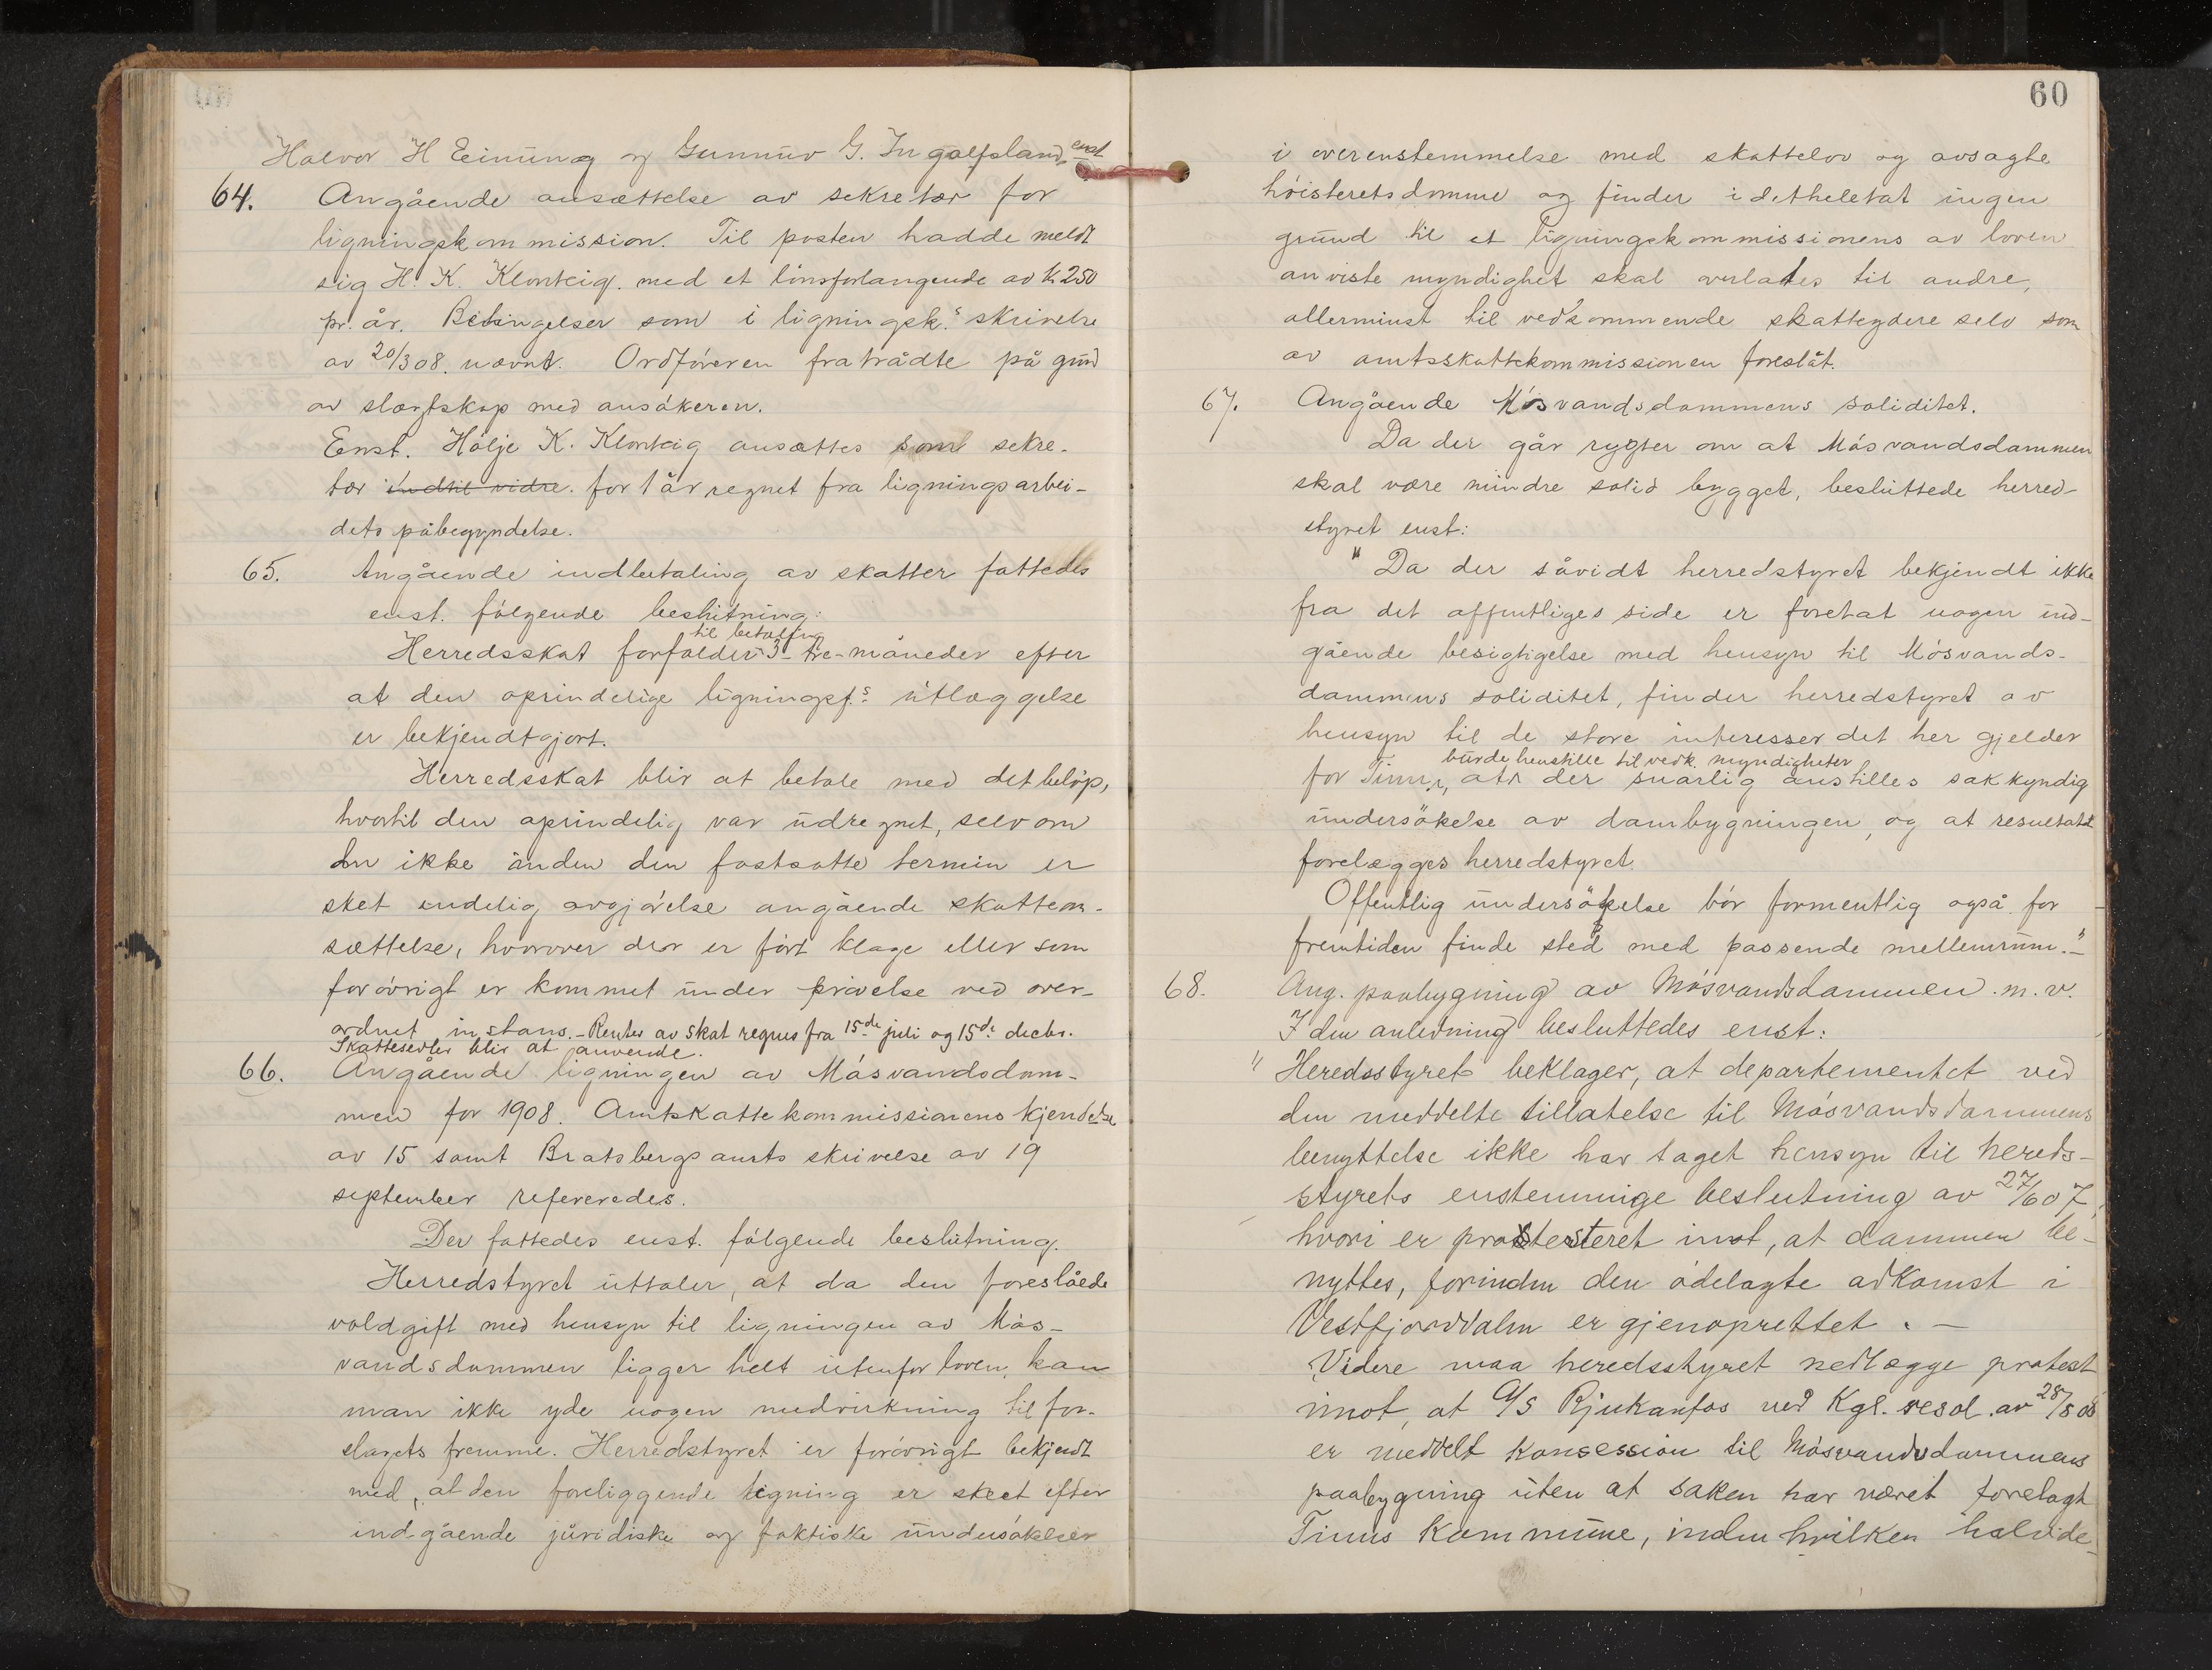 Halvor H Einung og Gunnuv G. Ingolfsland, enst
64. Angående ansættelse av sekretær for
ligningskommission. Til posten hadde meldt
sig H. K. Klonteig. med et lönsforlangende av k 250
pr. år. Betingelser som i ligningsk.s skrivelse
av 20/3 08. nævnt. Ordföreren fratrådte på grund
av slægtskap med ansökeren.
Enst. Hölje K. Klonteig ansættes som sekre-
tær indtil vidre. for 1 år regnet fra ligningsarbei-
dets påbegyndelse.
65. Angående indbetaling av skatter fattedes
enst. fölgende beslutning:
til betaling
Herredsskat forfalder 3 - tre - måneder efter
at den oprindelige ligningspf.s utlæggelse
er bekjendtgjort.
Herredsskat blir at betale med det belöp,
hvortil den oprindelig var udregnet, selv om
der ikke inden den fastsatte termin er
sket endelig avgjörelse angående skattean-
sættelse, hvorover der er fört klage eller som
forövrigt er kommet under prövelse ved over-
ordnet instans. - Renter av skat regnes fra 15de juli og 15de decbr.
Skattesedler blir at anvende.
66. Angående ligningen av Mösvandsdam-
men for 1908. Amtskattekommissionens kjendelse
av 15 samt Bratsbergs amts skrivelse av 19
september refereredes.
Der fattedes enst. fölgende beslutning.
Herredstyret uttaler, at da den foreslåede
voldgift med hensyn til ligningen av Mös-
vandsdammen ligger helt utenfor loven, kan
man ikke yde nogen medvirkning til for-
slagets fremme. Herredstyret er forövrigt bekjendt
med, at den foreliggende ligning er skeet efter
indgående juridiske og faktiske undersökelser
60
i overenstemmelse med skattelov og avsagte
höisteretsdomme og finder i detheletat ingen
grund til at ligningskommissionens av loven
anviste myndighet skal overlates til andre,
allerminst til vedkommende skatteydere selv som
av amtsskattekommissionen foreslåt.
67. Angående Mösvandsdammens soliditet.
Da der går rygter om at Mösvandsdammen
skal være mindre solid bygget, besluttede herred-
styret enst:
"Da der såvidt herredstyret bekjendt ikke
fra det offentliges side er foretat nogen ind-
gående besigtigelse med hensyn til Mösvands-
dammens soliditet, finder herredstyret av
hensyn til de store interesser det her gjelder
burde henstille til vedk. myndigheter
for Tinn, at der snarlig anstilles sakkyndig
undersökelse av dambygningen, og at resultatet
forelægges herredstyret.
Offentlig undersökelse bör formentlig også for
fremtiden finde sted med passende mellemrum."-
68. Ang. paabygning av Mösvandsdammen m. v.
I den anledning besluttedes enst:
" Heredsstyret beklager, at departementet ved
den meddelte tillatelse til Mösvandsdammens
benyttelse ikke har taget hensyn til hereds-
styrets enstemmige beslutning av 27/6 07,
hvori er protesteret imot, at dammen be-
nyttes, forinden den ödelagte adkomst i
Vestfjorddalen er gjenoprettet. -
Videre maa heredsstyret nedlægge protest
imot, at A/S Rjukanfos ved Kgl. resol. av 28/8 08
er meddelt konsession til Mösvandsdammens
paabygning uten at saken har været forelagt
Tinns kommune, inden hvilken